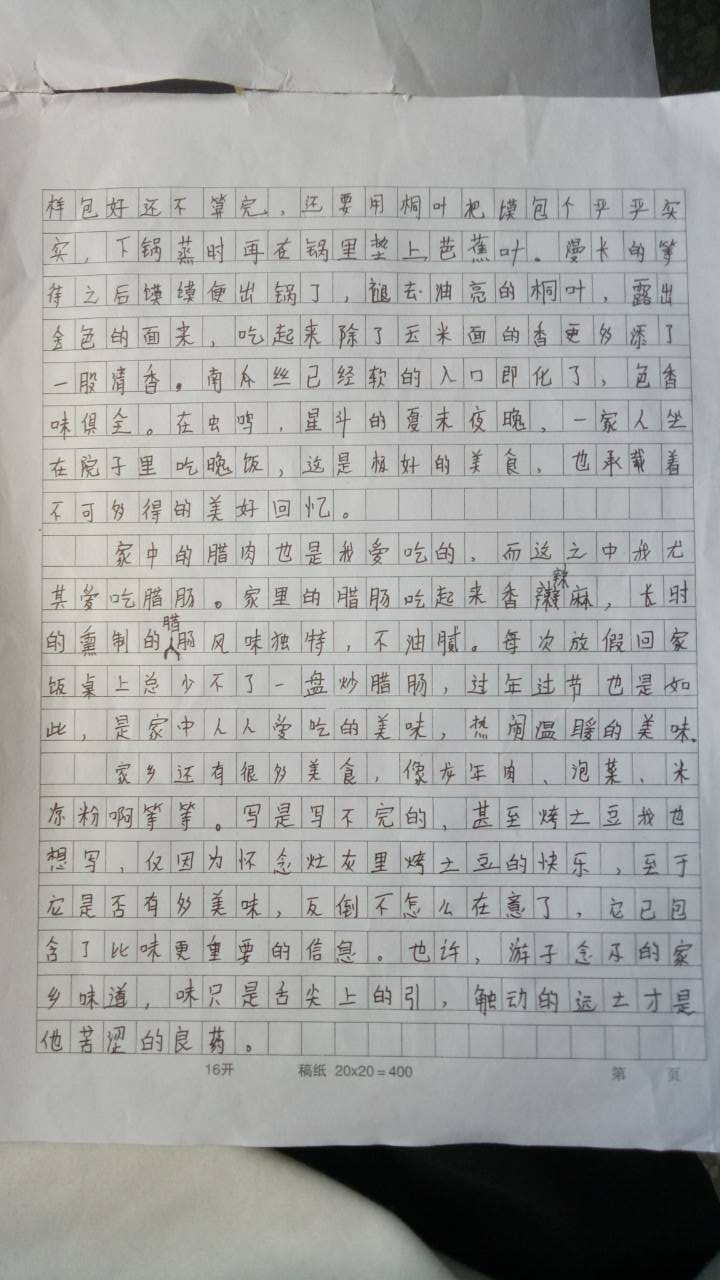 样包好还不算完，还要用桐叶把馍包个严严实
实，下锅蒸时再在锅里垫上芭蕉叶。漫长的等
待之后馍馍便出锅了，褪去油亮的桐叶，露出
金色的面来，吃起来除了玉米面的香更多添了
一股清香。南瓜丝已经软的入口即化了，色香
味俱全。在虫鸣，星斗的夏末夜晚，一家人坐
在院子里吃晚饭，这是极好的美食，也承载着
不可多得的美好回忆。
家中的腊肉也是我爱吃的，而这之中我尤
其爱吃腊肠。家里的腊肠吃起来香辣麻，长时
的熏制的腊肠风味独特，不油腻。每次放假回家
饭桌上总少不了一盘炒腊肠，过年过节也是如
此，是家中人人爱吃的美味，热闹温暖的美味。
家乡还有很多美食，像龙年肉、泡菜、米
凉粉啊等等。写是写不完的，甚至烤土豆我也
想写，仅因为怀念灶灰里烤土豆的快乐，至于
它是否有多美味，反倒不怎么在意了，它已包
含了比味更重要的信息。也许，游子念及的家
乡味道，味只是舌尖上的引，触动的远土才是
他苦涩的良药。
16开 稿纸 20x20=400 第 页